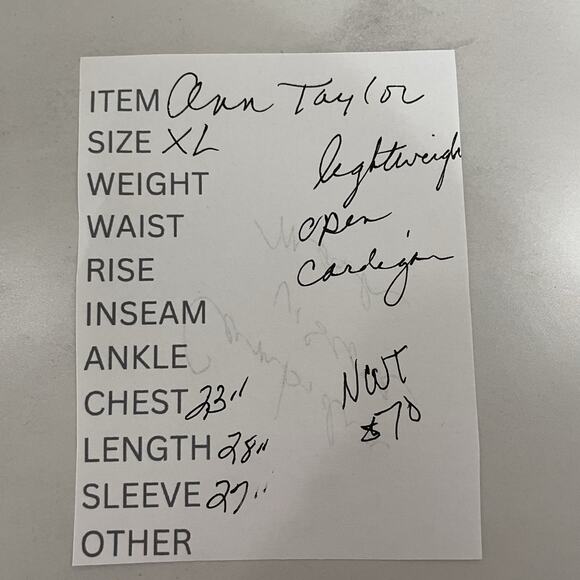 ITEM Ann Taylor
SIZE XL
lightweigh
WEIGHT
WAIST
open
RISE
cardigan
INSEAM
ANKLE
NWT
CHEST 23"
$70
LENGTH 28"
SLEEVE 27"
OTHER